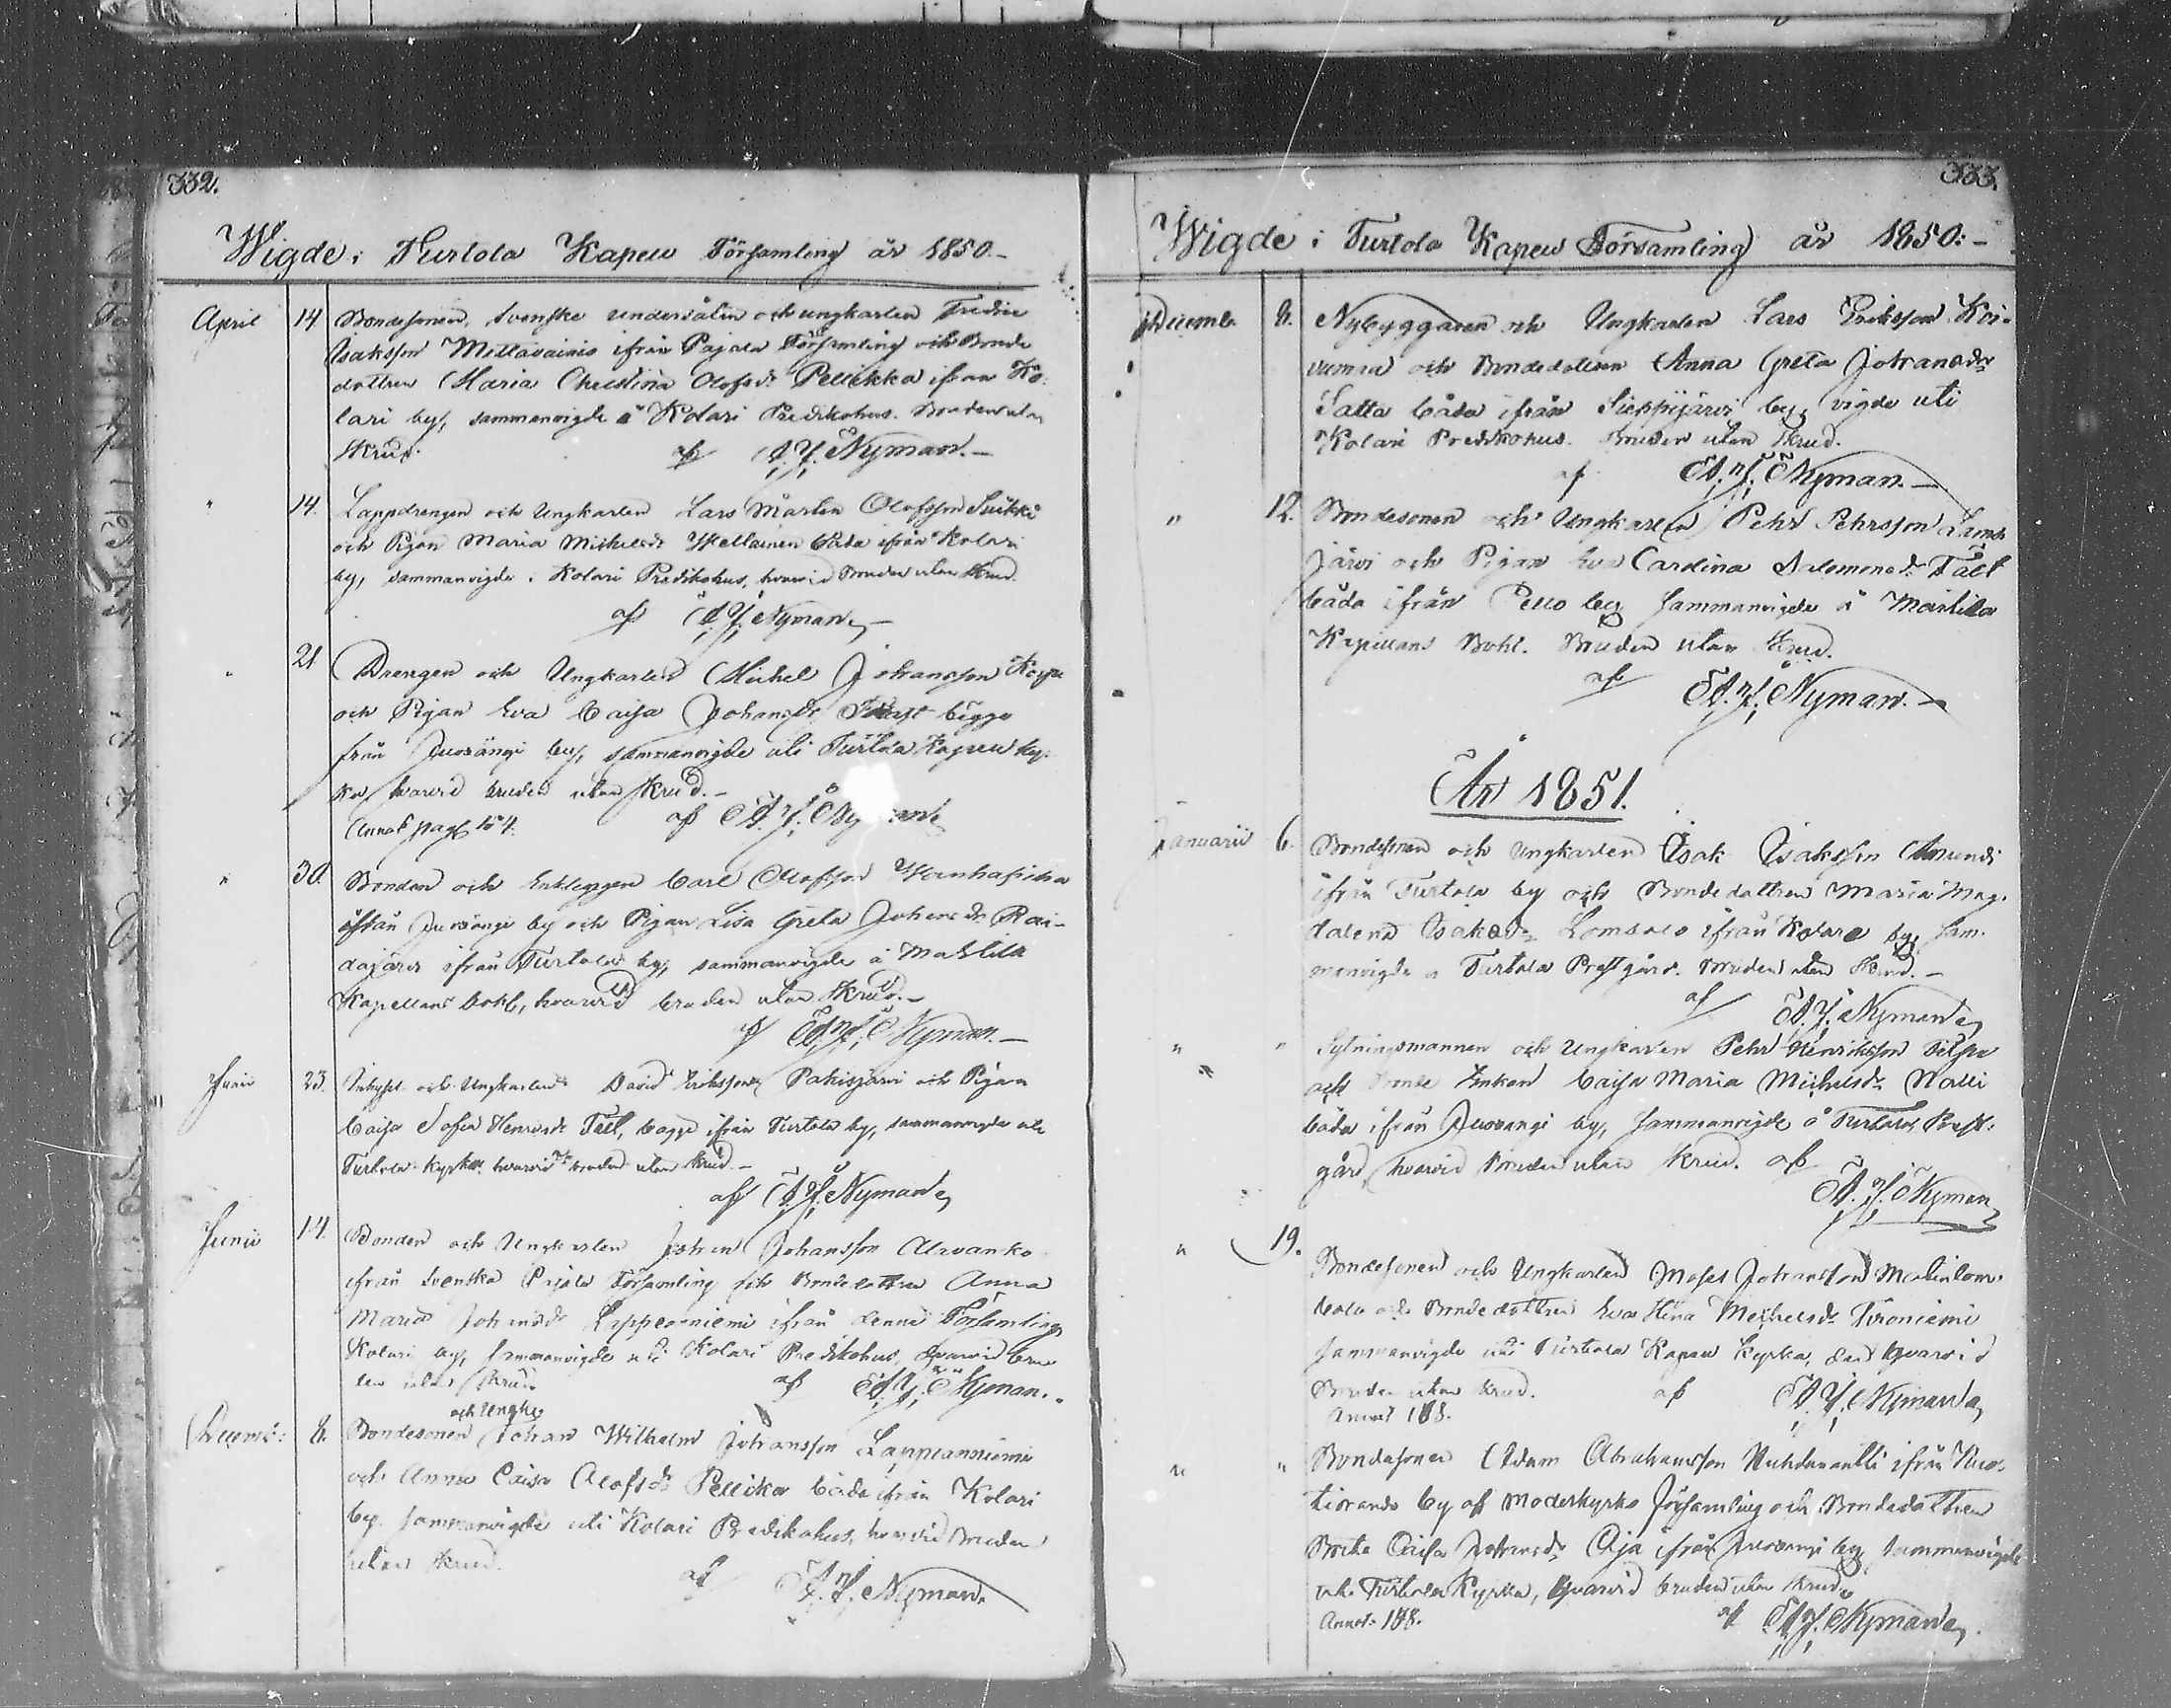 332.
Wigde i Turtola Kapell Församling år 1850.-
April 14 Bondesonen, Svenske undersåten och ungkarlen Fredric
Isaksson Mellavainio ifrån Pajala Församling och Bonde
dottren Maria Christina Olofsdr Pellikka ifrån Ko-
lari by, sammanvigde å Kolari Predikohus. Bruden utan
Skrud. af A. J. Nyman.-
" 14. Lappdrengen och Ungkarlen Lars Mårten Olofsson Suikki
och Pigan Maria Michelsdr båda ifrån Kolari
by, sammanvigde i Kolari Predikohus, hvarvid Bruden utan Skrud.
af A. J. Nyman
" 21 Drengen och Ungkarlen Michel Johansson
och Pigan Eva Caisa Johansdr bägge
från Juoxängi by, sammanvigde uti Turtola Kapell kyr-
ka, hvarvid bruden utan Skrud.-
Annot pag 154. af A. J. Ny
" 30. Bonden och Enklingen Carl Olofsson Wanhapiha
ifrån Juoxängi by och Pigan Lisa Greta Johansdr Rai-
dajärvi ifrån Turtola by, sammanvigde å Marttila
Kapellans bohl, hvarvid bruden utan Skrud.-
af A. J. Nyman.-
Junii 23. Inhyses och Ungkarlen David Eriksson Pakisjärvi och Pigan
Caisa Sofia Henricsdr Fält, bägge ifrån Turtola by, sammanvigde uti
Turtola kyrka hvarvid bruden utan skrud.-
af A. J. Nyman
Junii 14. Bonden och Ungkarlen Johan Johansson Alavanko
ifrån Svenska Pajala Församling och Bondedottren Anna
Maria Johansdr Lappeaniemi ifrån denne Församlings
Kolari by, sammanvigde uti Kolari Predikohus, hvarvid bru
den utan Skrud. af A. J. Nyman.
och Ungk.
Decemb: 8. Bondesonen Johan Wilhelm Johansson Lappeaniemi
och Anna Caisa Olofsdr Pellikka båda ifrån Kolari
by. sammanvigde uti Kolari Predikohus, hvarvid Bruden
utan Skrud. af A. J. Nyman.
333.
Wigde i Turtola Kapell Församling år 1850:-
Decemb. 8. Nybyggaren och Ungkarlen Lars Eriksson Koi-
vumaa och Bondedottren Anna Greta Johansdr
Satta båda ifrån Sieppijärvi by, vigde uti
Kolari Predikohus. Bruden utan Skrud.
af A. J. Nyman.-
" 12. Bondesonen och Ungkarlen Pehr Pehrsson Lamp-
järvi och Pigan Eva Carolina Salomonsdr Fält
båda ifrån Pello by sammanvigde å Marttila
Kapellans Bohl. Bruden utan Skrud.
af A. J. Nyman.-
År 1851.
Januarii 6. Bondesonen och Ungkarlen Isak Isaksson Amundi
ifrån Turtola by och Bondedottren Maria Mag-
dalena Isaksdr Lomsalo ifrån Kolari by, sam-
manvigde å Turtola Prestgård. Bruden utan Skrud.-
af A. J. Nyman
" " Sytningsmannen och Ungkarlen Pehr Henriksson
och Bonde Enkan Caisa Maria Michelsdr Nalli
båda ifrån Juoxangi by, sammanvigde å Turtola Prest-
gård, hvarvid Bruden utan skrud. af
A. J. Nyman
" 19. Bondesonen och Ungkarlen Moses Johansson
och Bondedottren Eva Hina Michelsdr Tironiemi
sammanvigde uti Turtola Kapell Kyrka, hvarvid
Bruden utan skrud. af A. J. Nyman
Annot 188.
" " Bondesonen Adam Abrahamsson ifrån Kuo-
tioranda by af Moderkyrko församling och Bondedottren
Brita Caisa Johansdr Äjä ifrån Juoxangi by sammanvigde
uti Turtola Kyrka, hvarvid bruden utan skrud.
Annot. 188. af A. J. Nyman